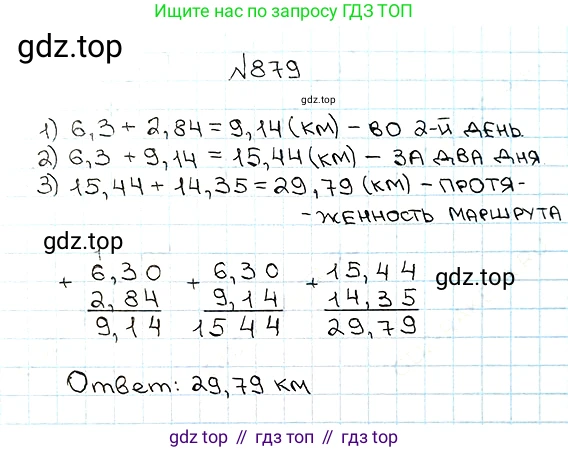 Ищите нас по запросу ГДЗ ТОП
gdz.top
№879
gdz.top
1) 6,3 + 2,84 = 9,14 (км) – во 2-й день
2) 6,3 + 9,14 = 15,44 (км) – за два дня
3) 15,44 + 14,35 = 29,79 (км) – протя-
- женность маршрута
gdz.top
gdz.top
+ 6,30 + 6,30 + 15,44
2,84 9,14 14,35
9,14 15 44 29,79
Ответ: 29,79 км
gdz.top // гдз топ // gdz.top